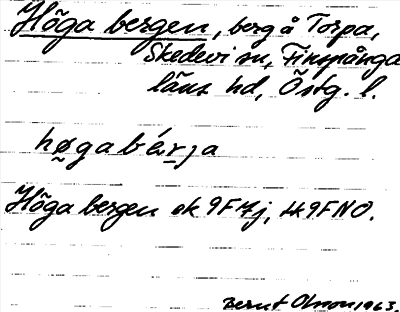 Höga bergen, berg å Torpa,
Skedevi sn, Finspånga
läns hd, Östg. l.
høgabérja
Höga bergen ek 9F7j, tk 9FNO.
Bernt Olsson 1963.